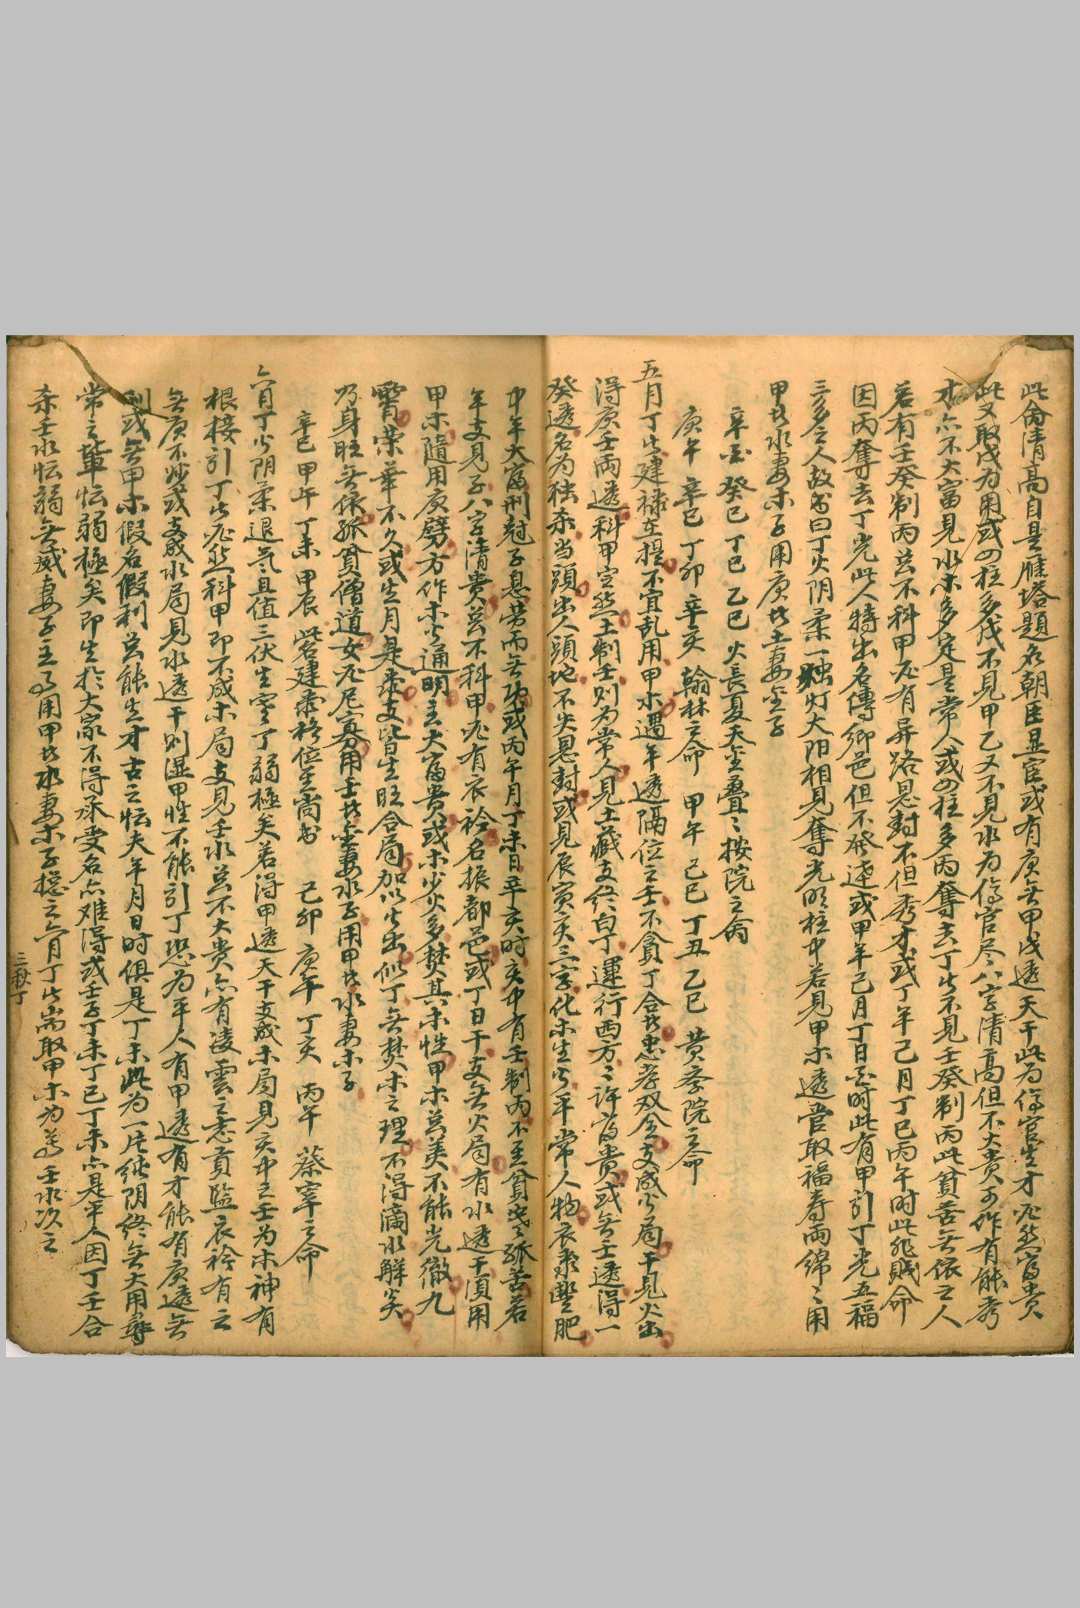 此命清高自是雁塔題名朝臣显宦或有庚無甲戊透天干此为傷官生才必然富貴
此又取戊为用或四柱多戊不見甲乙又不見水为傷官尽八字清高但不大貴可作有能秀
才亦不大富見水木多定是常人或四柱多丙奪去丁火不見壬癸制丙此貧苦無依之人
若有壬癸制丙並不科甲必有异路恩封不但秀才或丁年己月丁巳丙午时此非賤命
因丙奪去丁光此人特出名傳鄉邑但不發達或甲年己月丁日时此有甲引丁光五福
三多之人故書曰丁火阴柔一独灯大阳相見奪光明柱中若見甲木透管取福寿兩綿〻用
甲者水妻木子用庚者土妻金子
辛 癸巳 丁巳 乙巳 火長夏天金疊〻按院之命
庚午 辛巳 丁卯 辛亥 翰林之命 甲午 己巳 丁丑 乙巳 黄參院之命
五月丁火建禄在提不宜乱用甲木遇年透隔位之壬不貪丁合者忠孝双全支成火局干見火出
得庚壬兩透科甲定然土制壬則为常人見土藏支終白丁運行西方〻許富貴或無壬透得一
癸透名为独杀当頭出人頭地不失恩封或見辰寅亥三字化木生火平常人物衣祿豐肥
中年大富刑冠子息劳而無功或丙午月丁未日辛亥时亥中有壬制丙不至貧賤孤苦若
年支見子八字清貴並不科甲必有衣衿名振都邑或丁日干支無火局有水透干須用
甲木隨用庚劈方作木火通明主大富貴或木少火多焚其木性甲木並美不能光徹九
霄荣華不久或生月是祿支皆生旺合局加以火出似丁無焚木之理不得滴水解炎
乃身旺無依孤貧僧道女必尼寡用土者金妻水子用甲者水妻木子
辛巳 甲午 丁未 甲辰 此名建祿移位至尚书 己卯 庚午 丁亥 丙午 蔡宰之命
六月丁火阴柔退氣且值三伏生寒丁弱極矣若得甲透天干支成木局見亥中之壬为木神有
根接引丁火必然科甲即不成木局支見壬水並不大貴亦有凌雲之志貢監衣衿有之
無庚不妙或支成水局見水透干則湿甲性不能引丁恐为平人有甲透有才能有庚透無
則或無甲木假名假利並能生才古云怯夫年月日时俱是丁未此为一片純阴終無大用尋
常之輩怯弱極矣即生於大家不得承受名亦难得或壬子丁未丁巳丁未亦是平人因丁壬合
杀壬水怯弱無威妻子主事用甲者水妻木子總之六月丁火耑取甲木为美壬水次之
三秋丁